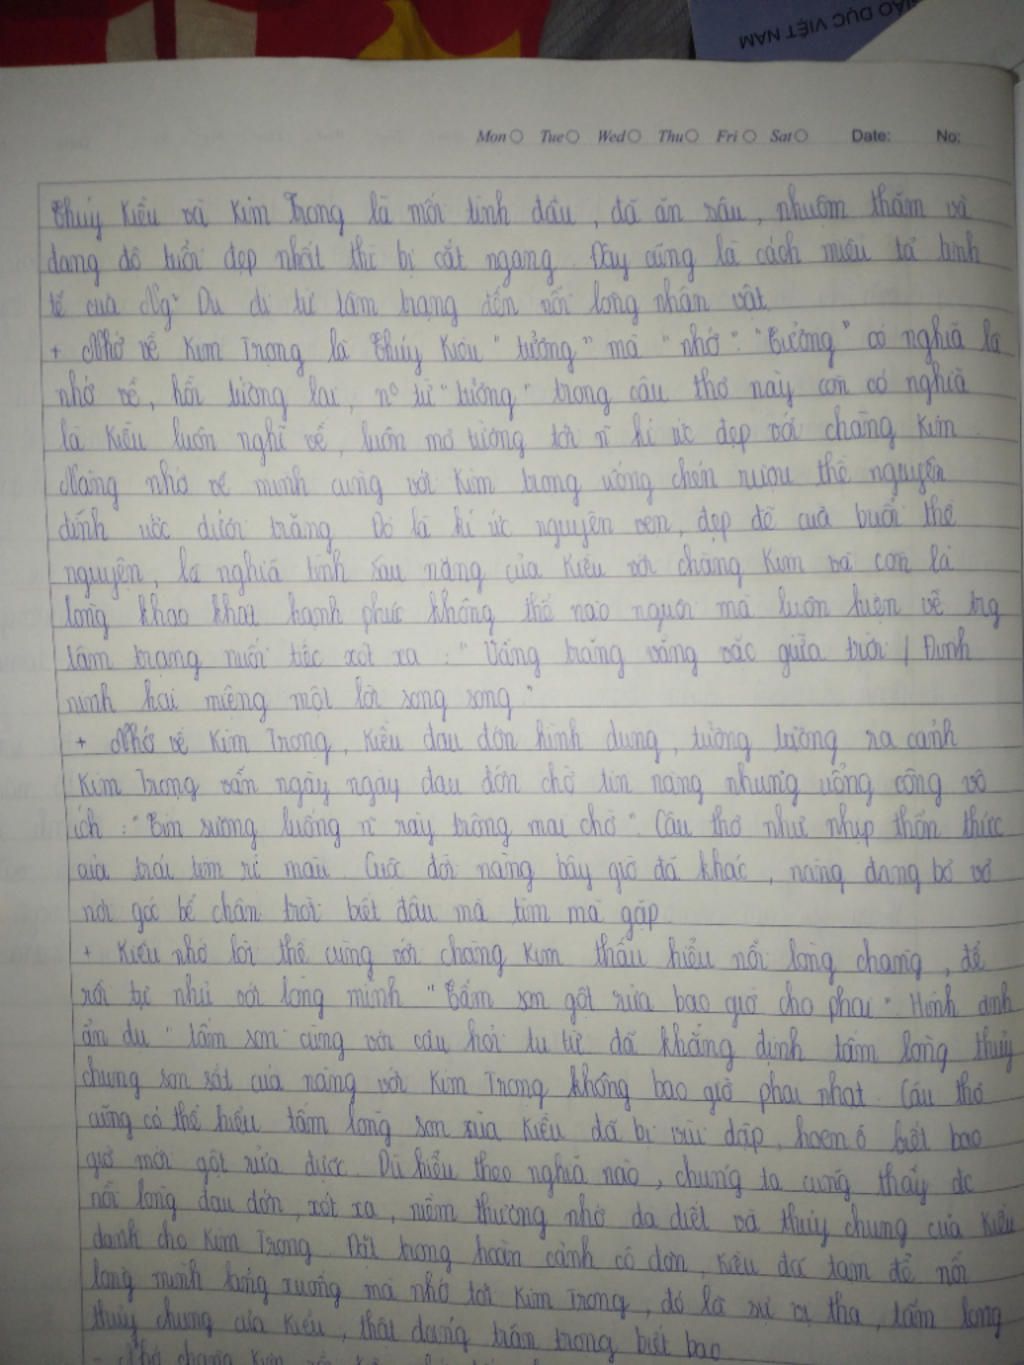 GIÁO DỤC VIỆT NAM
Mon Tue Wed Thu Fri Sat Date: No:
Thúy Kiều và Kim Trọng là mối tình đầu, đã ăn sâu, nhuốm thắm và
đang độ tuổi đẹp nhất thì bị cắt ngang. Đây cũng là cách miêu tả tinh
tế của Ng~ Du đi từ tâm trạng đến nỗi lòng nhân vật
+ Nhớ về Kim Trọng là Thúy Kiều "tưởng" mà "nhớ". "Tưởng" có nghĩa là
nhớ về, hồi tưởng lại, n° từ "tưởng" trong câu thơ này còn có nghĩa
là Kiều luôn nghĩ về, luôn mơ tưởng tới n~ kí ức đẹp với chàng Kim.
Nàng nhớ về mình cùng với Kim trọng uống chén rượu thề nguyền
đính ước dưới trăng. Đó là kí ức nguyên vẹn, đẹp đẽ của buổi thề
nguyện, là nghĩa tình sâu nặng của Kiều với chàng Kim và còn là
lòng khao khát hạnh phúc không thể nào nguôi mà luôn hiện về trg
tâm trạng nuối tiếc xót xa : "Vầng trăng vằng vặc giữa trời / Đinh
ninh hai miệng một lời song song"
+ Nhớ về Kim Trọng, Kiều đau đớn hình dung, tưởng tượng ra cảnh
Kim Trọng vẫn ngày ngày đau đớn chờ tin nàng nhưng uổng công vô
ích : "Tin sương luống n~ rày trông mai chờ". Câu thơ như nhịp thổn thức
của trái tim rỉ máu. Cuộc đời nàng bây giờ đã khác, nàng đang bơ vơ
nơi góc bể chân trời biết đâu mà tìm mà gặp
+ Kiều nhớ lời thề cùng với chàng Kim thấu hiểu nỗi lòng chàng, để
rồi tự nhủ với lòng mình "Tấm son gột rửa bao giờ cho phai". Hình ảnh
ẩn dụ "tấm son" cùng với câu hỏi tu từ đã khẳng định tấm lòng thủy
chung son sắt của nàng với Kim Trọng không bao giờ phai nhạt. Câu thơ
cũng có thể hiểu tấm lòng son của Kiều đã bị vùi dập, hoen ố biết bao
giờ mới gột rửa được. Dù hiểu theo nghĩa nào, chúng ta cũng thấy đc
nỗi lòng đau đớn, xót xa, niềm thương nhớ da diết và thủy chung của Kiều
dành cho Kim Trọng. Đặt trong hoàn cảnh cô đơn, Kiều đã tạm để nỗi
lòng mình lắng xuống mà nhớ tới Kim Trọng, đó là sự vị tha, tấm lòng
thủy chung của Kiều, thật đáng trân trọng biết bao
- Nhớ chàng Kim